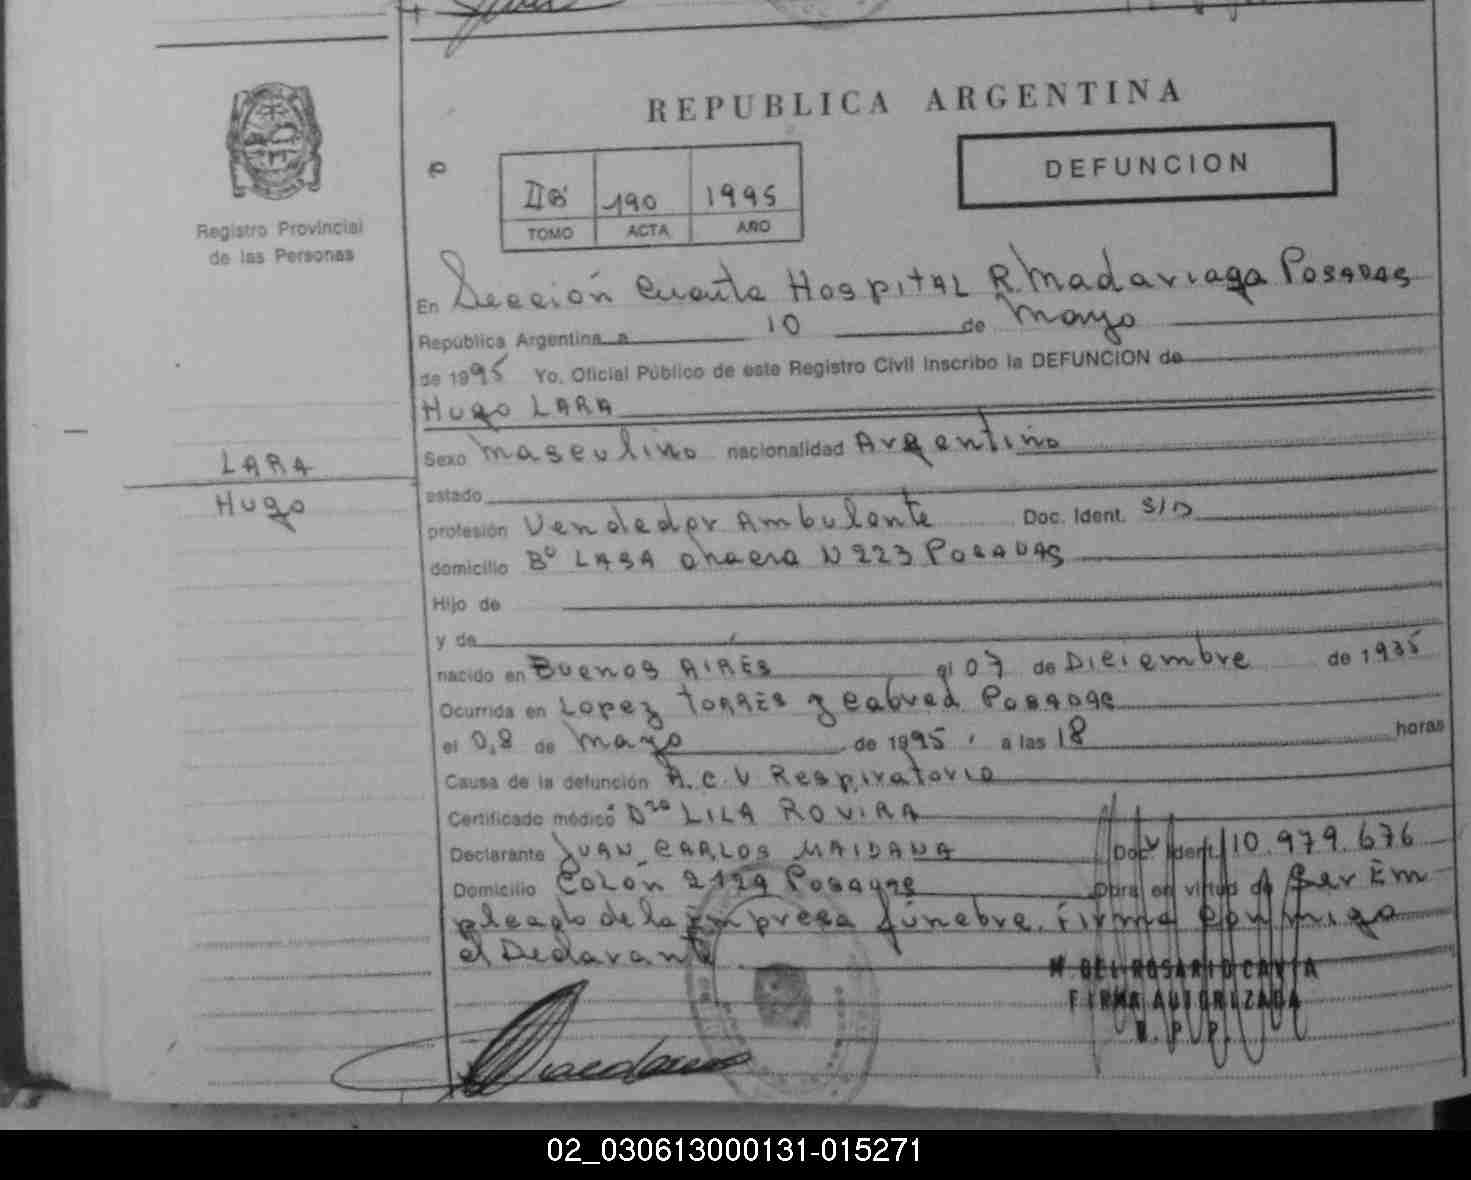 REPUBLICA ARGENTINA
DEFUNCION
190 1995
TOMO ACTA AÑO
Registro Provincial
de las Personas
En Sección Cuarta Hospital R. Madariaga Posadas
República Argentina a 10 de Mayo
de 1995 Yo, Oficial Público de este Registro Civil Inscribo la DEFUNCION de
Hugo LARA
LARA
Hugo
Sexo Masculino nacionalidad Argentino
estado
profesión Vendedor Ambulante Doc. Ident. S/D
domicilio Bº LASA chacra N 223 POSADAS
Hijo de
y de
nacido en BUENOS AIRES el 07 de Diciembre de 1935
Ocurrida en Lopez TORRES y Cabred Posadas
el 0,8 de Mayo de 1995, a las 18 horas
Causa de la defunción A.C.V Respiratorio
Certificado médico Dra LILA ROVIRA
Declarante JUAN CARLOS MAIDANA Doc. Ident. 10.979.676
Domicilio COLON 2129 Posadas Obra en virtud de Ser Em
pleado de la Empresa fúnebre. Firma conmigo
el Declarante
M. DEL ROSARIO CAVIA
FIRMA AUTORIZADA
R. P. P.
02_030613000131-015271